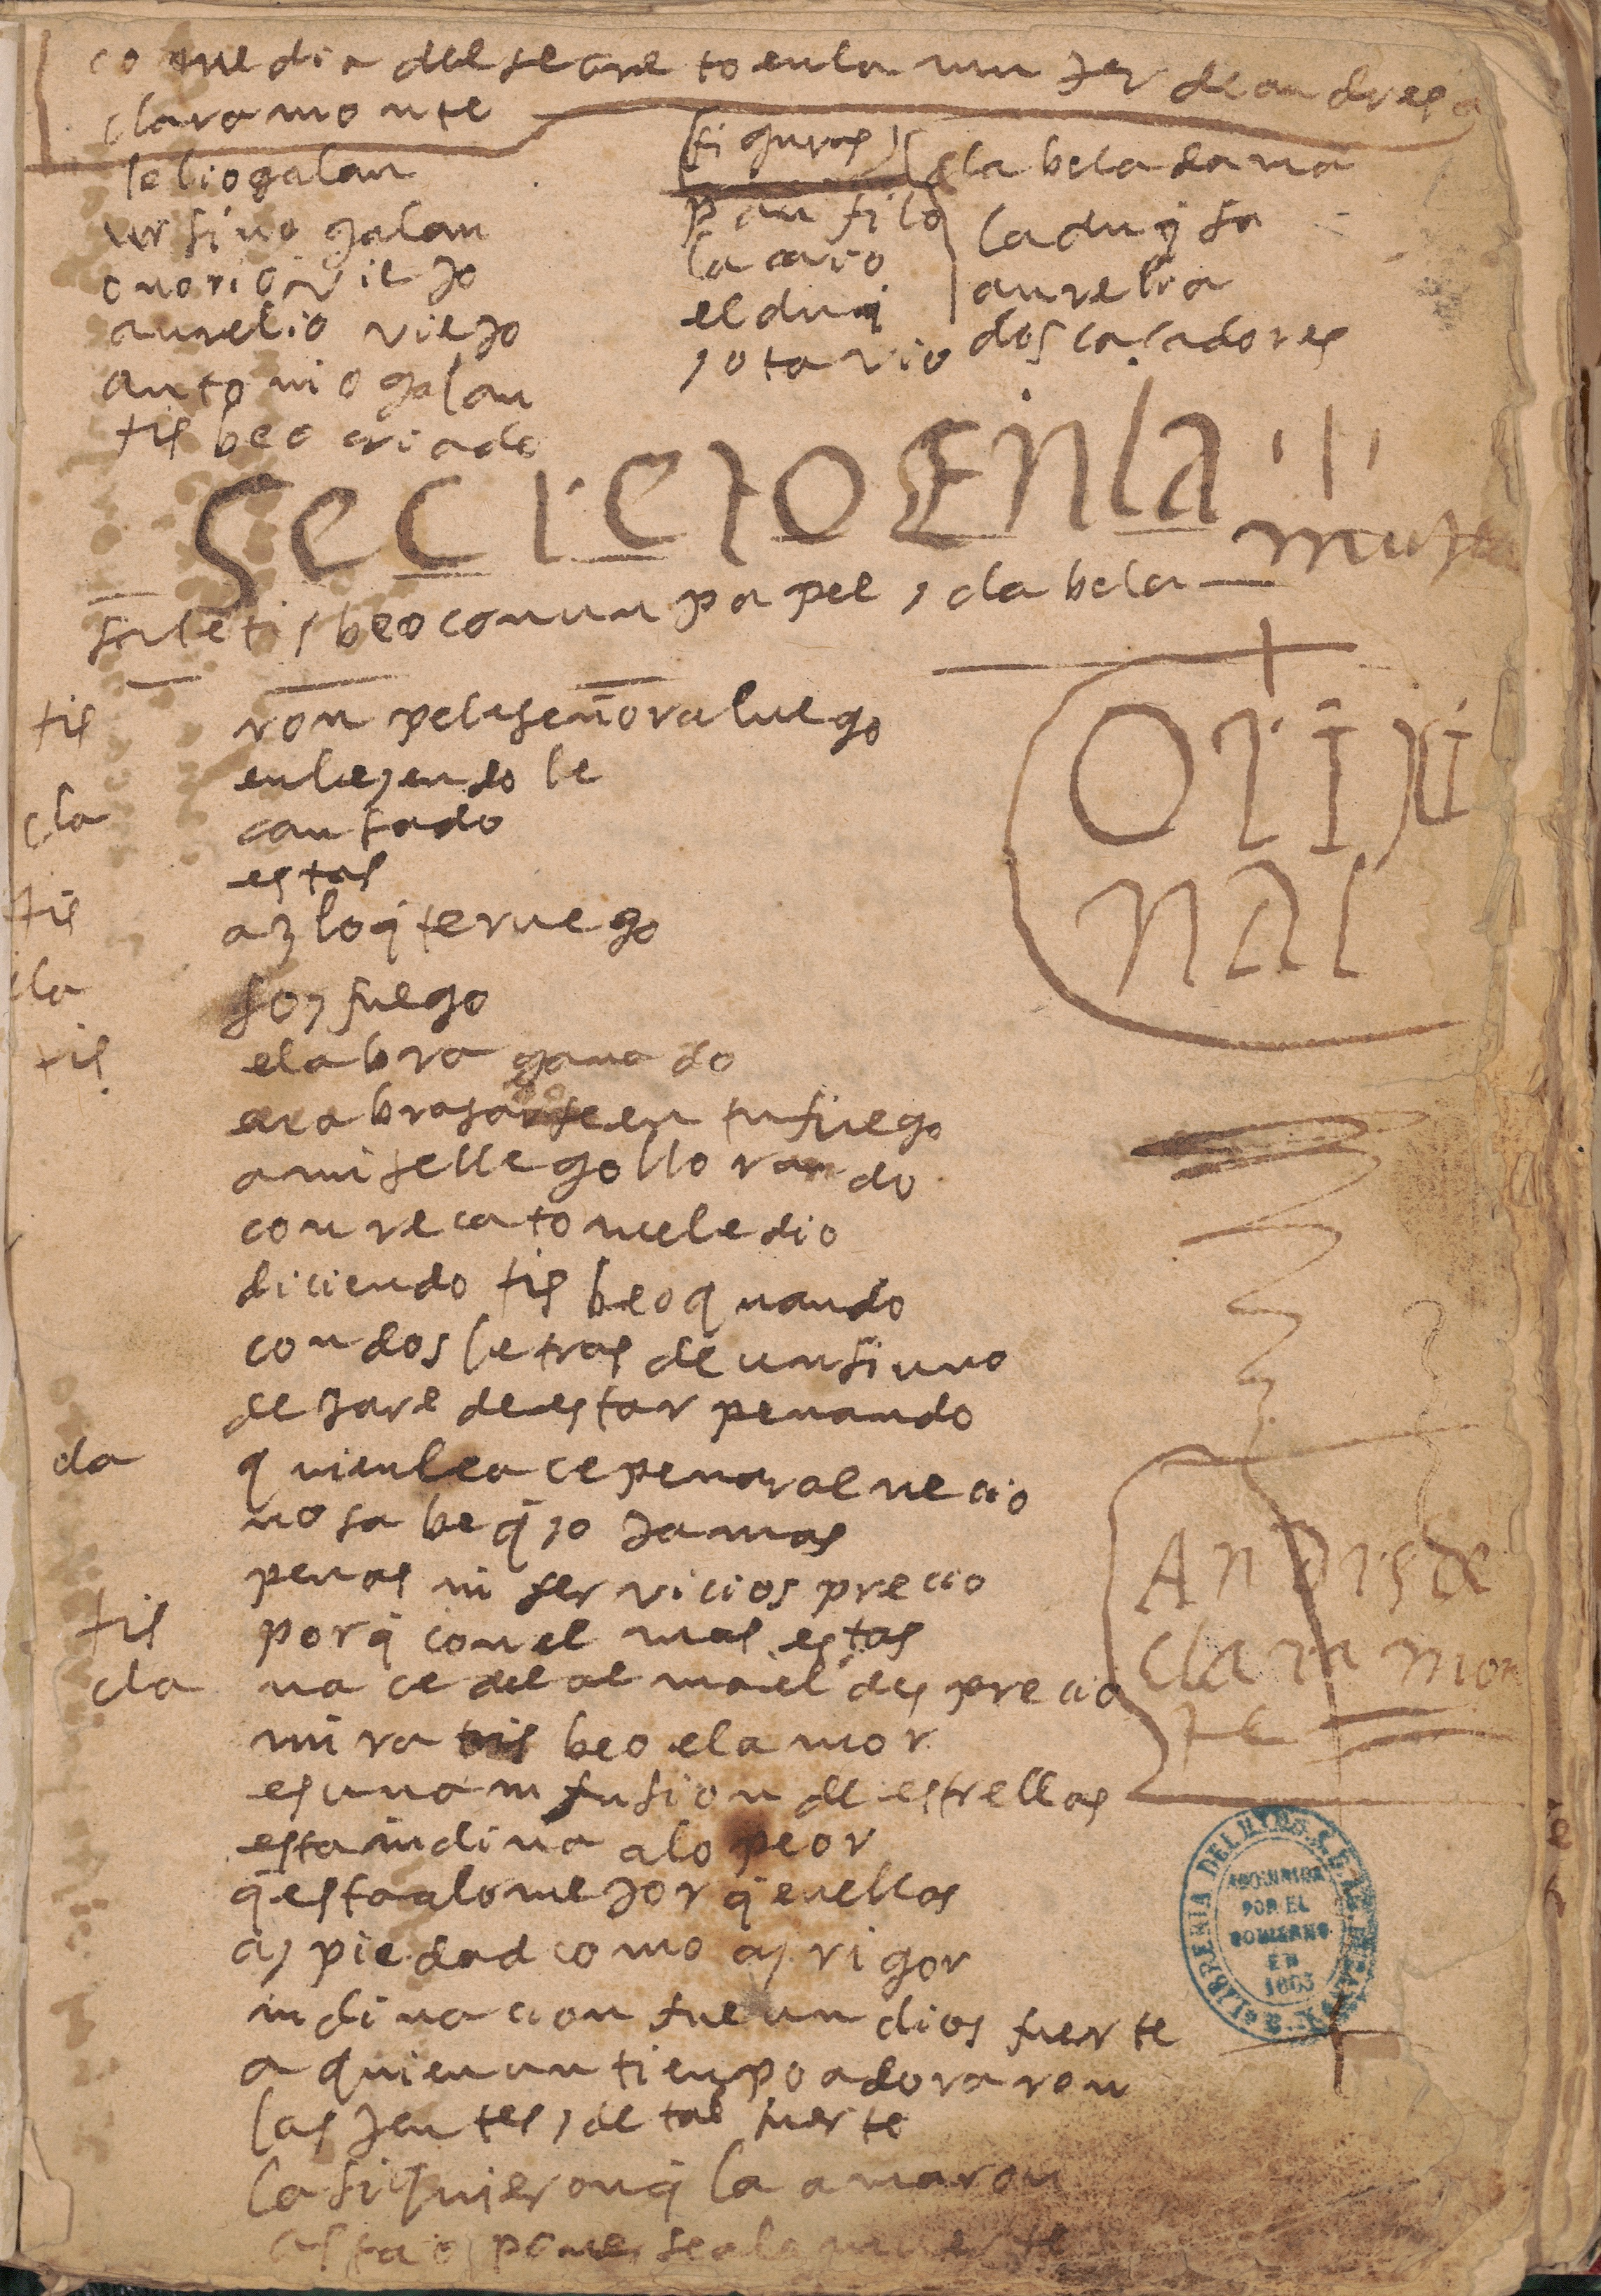 comedia del secreto en la mujer de andres d
claramonte
(figuras)
lelio galan
ursino galan
onorio viejo
aurelio viejo
antonio galan
tisbeo criado
panfilo
lacaio
el duq̄
y otavio
clabela dama
la duq̄sa
aurelia
dos caçadores
secreto En la
mujer
sale tisbeo con un papel y clabela
OriJi
nal
tis ronpela señora luego
en leyendole
cla cansado
estas
tis az lo q̄ te ruego
cla soy fuego
tis el abra ganado
en tu fuego
a mi se llego llorando
con recato me le dio
diciendo tisbeo quando
con dos letras de ursino
dejare de estar penando
cla quien le ace penar al necio
no sabe q̄ yo jamas
penas ni servicios precio
tis porq̄ con el mas estas
cla nace del alma el desprecio
mira tisbeo el amor
es una infusion de estrellas
esta indina a lo peor
q̄ esta a lo mejor q̄ en ellas
ay piedad como ay rigor
indinacion fue un dios fuerte
a quien un tienpo adoraron
las jentes y de tal suerte
la siguieron q̄ la amaron
asta oponerse a la muerte
AnDres de
Claramon
te
LIBRERIA DEL
ADQUIRIDA
POR EL
GOBIERNO
EN
1863